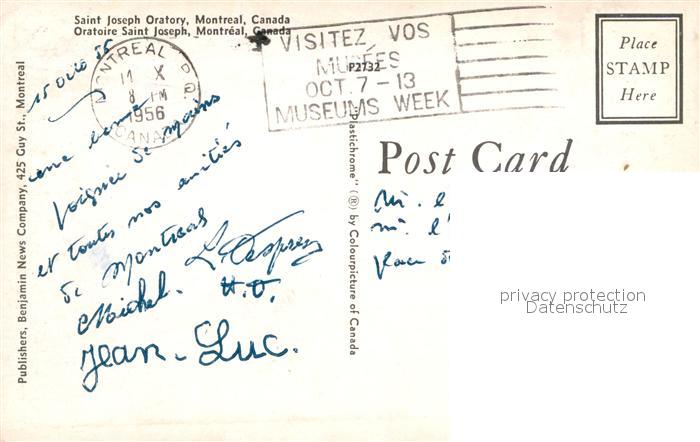 Saint Joseph Oratory, Montreal, Canada
Oratoire Saint Joseph, Montréal, Canada
MONTREAL P.Q.
X
8 PM
1956
CANADA
VISITEZ VOS
MUSÉES
OCT. 7 - 13
MUSEUMS WEEK
P2732
Place
STAMP
Here
Post Card
Publishers, Benjamin News Company, 425 Guy St., Montreal
Plastichrome" (®) by Colourpicture of Canada
une bonne
Poignée de mains
et toutes nos amitiés
de Montreal
Michel.
Jean-Luc.
Place
privacy protection
Datenschutz